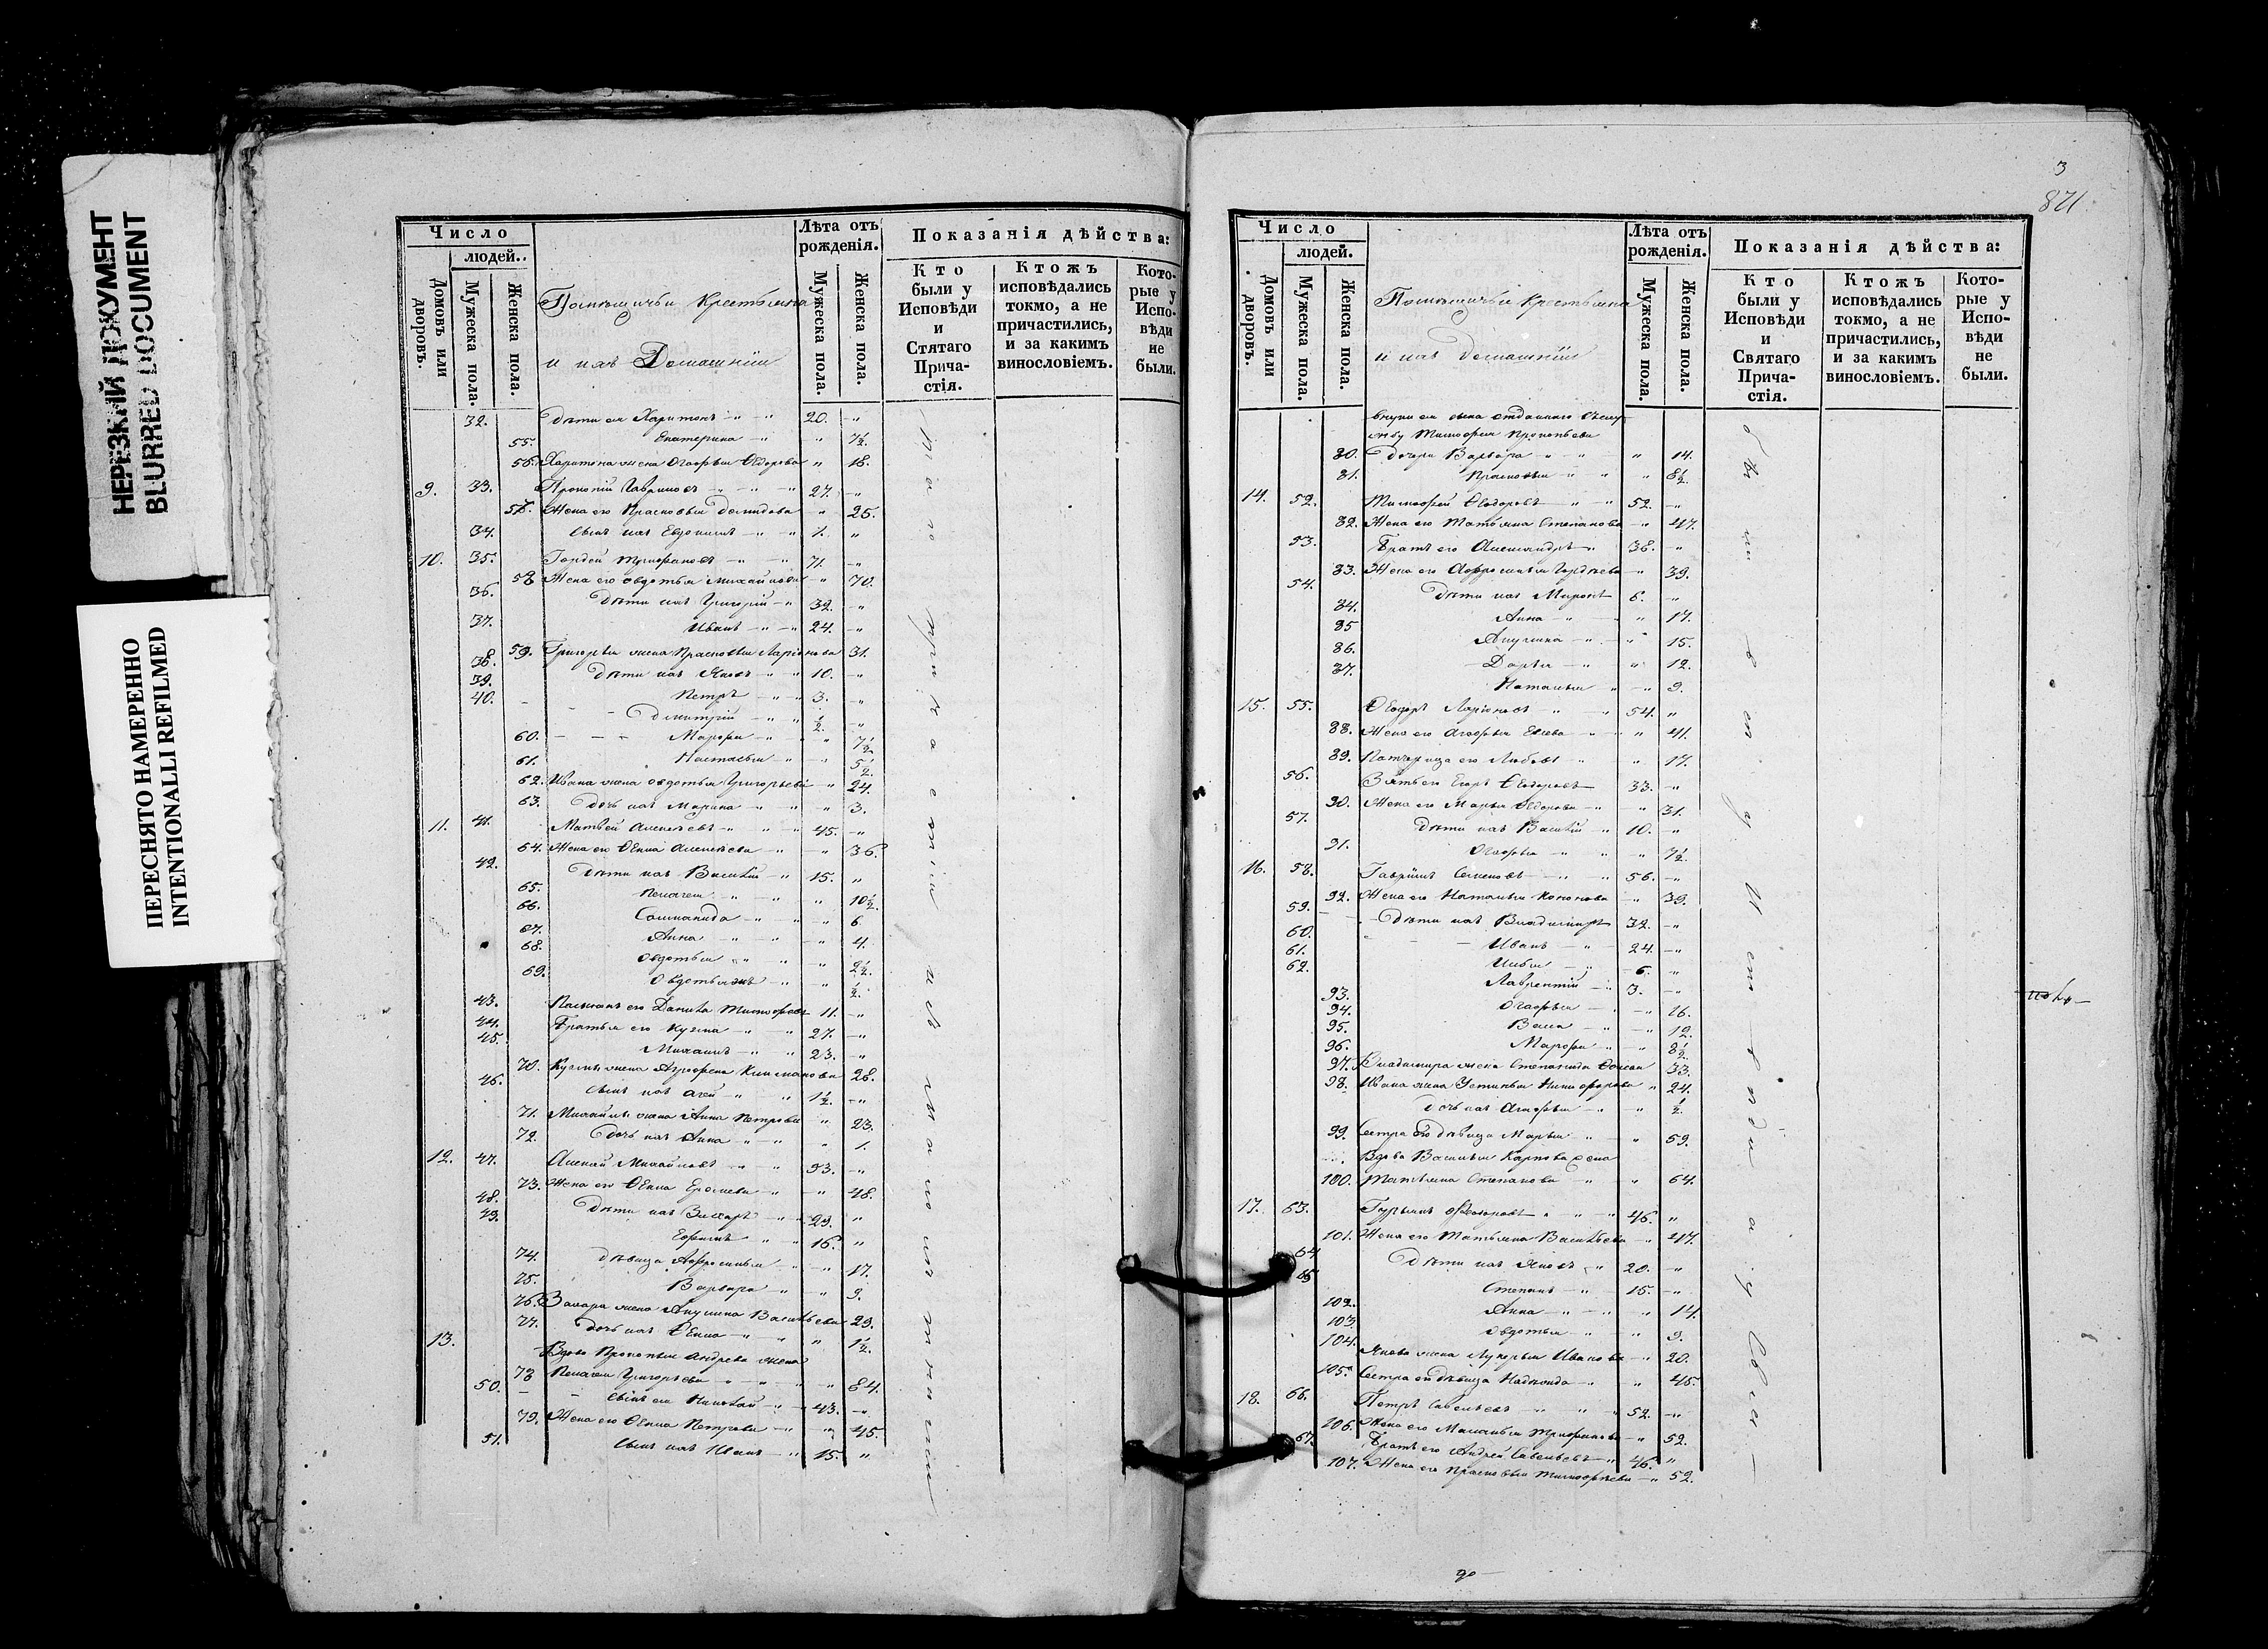 НЕРЕЗКИЙ ДОКУМЕНТ
BLURRED DOCUMENT
ПЕРЕСНЯТО НАМЕРЕННО
INTENTIONALLI REFILMED
Число
людей.
Домовъ или дворовъ.
Мужеска пола.
Женска пола.
Помѣщичьи Крестьяна
и ихъ Домашніи
Лѣта отъ рожденія.
Мужеска пола.
Женска пола.
Показанія дѣйства:
Кто были у Исповѣди и Стятаго Прича-стія.
Ктожъ исповѣдались токмо, а не причастились, и за какимъ винословіемъ.
Кото-рые у Испо-вѣди не были.
32. Дѣти ея Харитонъ 20.
55. Екатерина 7½.
56. Харитона жена Агафья Ѳедорова 18.
9. 33. Прокопій Гавриловъ 27.
Жена его Прасковья Демидова 25.
34. Сынъ ихъ Евдокимъ 1.
10. 35. Гордей Трифановъ 71.
58 Жена его Овдотья Михайлова 70.
36. Дѣти ихъ Григорій 32.
37. Иванъ 24.
59. Григорья жена Прасковья Ларіонова 31.
38. Дѣти ихъ Яковъ 10.
39. Петръ 3.
40. Дмитрій ½
60. Марфа 7½
61. Настасья 5½
62. Ивана жена Овдотья Григорьева 24.
63. Дочь ихъ Марина 3.
11. 41. Матвей Алексѣевъ 45.
64. Жена его Ѳекла Алексѣева 36.
42. Дѣти ихъ Василій 15.
65. Пелагея 10½
66. Соломанида 6
67. Анна 4.
68. Овдотья 2½.
69. Овдотья жъ ½.
43. Данила Тимофеевъ 11.
44. Братья его Кузма 27.
45. Михаилъ 23.
70. Кузмы жена Агрофена 28.
46. Сынъ ихъ 1½.
71. Михайлы жена Анна Петрова 23.
72. Дочь ихъ Анна 1.
12. 47. Алексѣй Михайловъ 93.
73. Жена его Ѳекла 48.
48. Дѣти ихъ Захаръ 29.
49. Ефимъ 16.
74. дѣвица Афросинья 17.
75. Варвара 9.
76. Захара жена Акулина Васильева 29.
77. дочь ихъ Ѳекла 1½.
13. Вдова Прокопья Андреева жена
78 Пелагея Григорьева 64.
50. Сынъ ея Николай 43.
79. Жена его Ѳекла Петрова 45.
51. Сынъ ихъ Иванъ 15.
3
821.
Число
людей.
Домовъ или дворовъ.
Мужеска пола.
Женска пола.
Помѣщичьи Крестьяна
и ихъ Домашніи
Лѣта отъ рожденія.
Мужеска пола.
Женска пола.
Показанія дѣйства:
Кто были у Исповѣди и Святаго Прича-стія.
Ктожъ исповѣдались токмо, а не причастились, и за какимъ винословіемъ.
Кото-рые у Испо-вѣди не были.
внуки ея сына отданнаго въ слу-
жбу Тимофея Прокопьева
80. Дочери Варвара 14.
81. Прасковья 8½
14. 52. Тимофей Ѳедоровъ 52.
82. Жена его Татьяна Степанова 47.
53. Братъ его Александръ 38.
83. Жена его Афросинья Гордѣева 39.
54. Дѣти ихъ Миронъ 6.
84. Анна 17.
85 Акулина 15.
86. Дарья 12.
87. Наталья 9.
15. 55. Ѳедоръ Ларіоновъ 54.
88. Жена его Агафья 41.
89. Патчерица его Любовь 17.
56. Зять его Егоръ Ѳедоровъ 33.
90. Жена его Марья Ѳедорова 31.
57. Дѣти ихъ Василій 10.
91. Агафья 7½.
16. 58. Гаврилъ Семеновъ 56.
92. Жена его Наталья Кононова 39.
59. Дѣти ихъ Владимиръ 32.
60. Иванъ 24.
61. Илья 6.
62. Лаврентій 3.
93. Агафья 16.
94. 12.
95. Марфа 8½
96. Владимира жена Степанида 33.
97. Ивана жена Устинья Никифорова 24.
98. дочь ихъ Агафья ½.
99. Сестра его дѣвица Марья 59.
Вдова Василья Карпова жена
100. Татьяна Степанова 64.
17. 63. Гурьянъ Ѳедоровъ 46.
101. Жена его Татьяна Васильева 47.
64 Дѣти ихъ Яковъ 20.
65 Степанъ 15.
102. Анна 14.
103. Овдотья 9.
104. Якова жена Лукерья Иванова 20.
105. Сестра его дѣвица Надежда 45.
18. 66. Петръ Савельевъ 52.
106. Жена его Меланья Трифанова 52.
67. Братъ его Андрей Савельевъ 46.
107. Жена его Прасковья Тимофѣева 52.